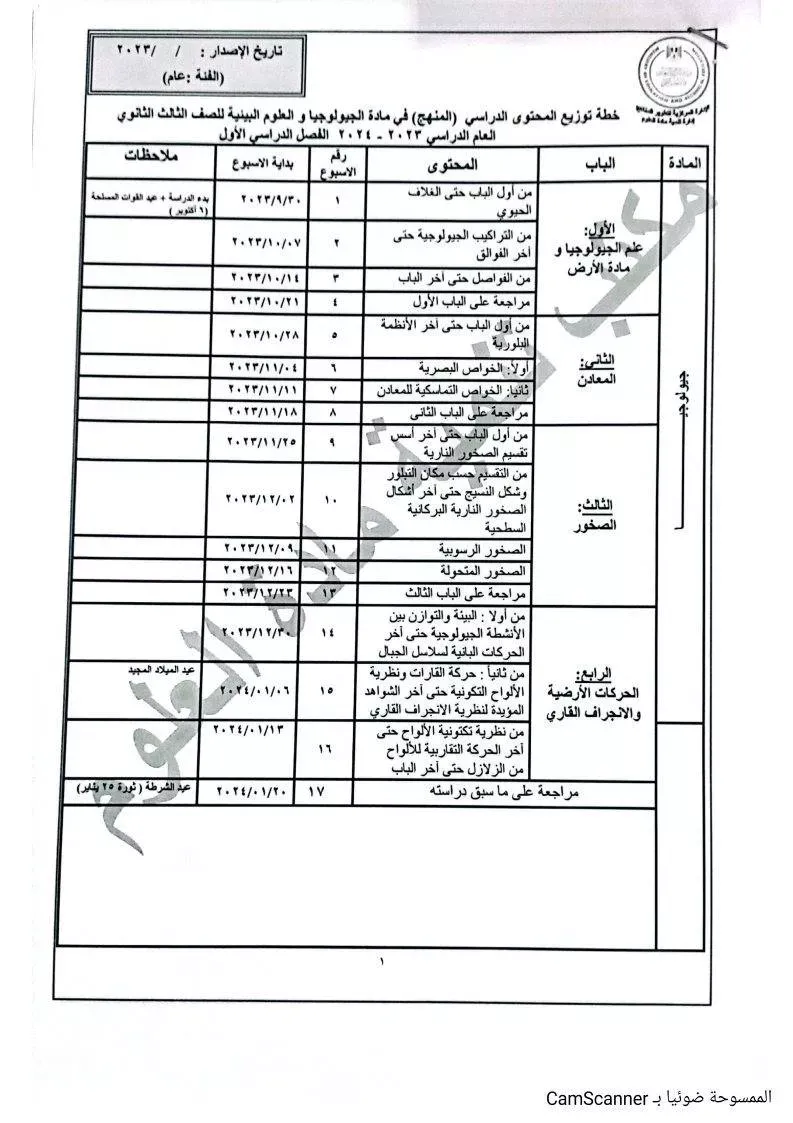 تاريخ الإصدار : / /٢٠٢٣
(الفئة :عام)
خطة توزيع المحتوى الدراسي (المنهج) في مادة الجيولوجيا و العلوم البيئية للصف الثالث الثانوي
العام الدراسي ٢٠٢٣ - ٢٠٢٤ الفصل الدراسي الأول
المادة الباب المحتوى رقم الاسبوع بداية الاسبوع ملاحظات
جيولوجيا
الأول:
علم الجيولوجيا و
مادة الأرض
من أول الباب حتى الغلاف
الحيوي
١ ٢٠٢٣/٩/٣٠ بدء الدراسة + عيد القوات المسلحة
(٦ أكتوبر )
من التراكيب الجيولوجية حتى
أخر الفوالق
٢ ٢٠٢٣/١٠/٠٧
من الفواصل حتى أخر الباب ٣ ٢٠٢٣/١٠/١٤
مراجعة على الباب الأول ٤ ٢٠٢٣/١٠/٢١
الثاني:
المعادن
من أول الباب حتى أخر الأنظمة
البلورية
٥ ٢٠٢٣/١٠/٢٨
أولا: الخواص البصرية ٦ ٢٠٢٣/١١/٠٤
ثانيا: الخواص التماسكية للمعادن ٧ ٢٠٢٣/١١/١١
مراجعة على الباب الثاني ٨ ٢٠٢٣/١١/١٨
الثالث:
الصخور
من أول الباب حتى أخر أسس
تقسيم الصخور النارية
٩ ٢٠٢٣/١١/٢٥
من التقسيم حسب مكان التبلور
وشكل النسيج حتى أخر أشكال
الصخور النارية البركانية
السطحية
١٠ ٢٠٢٣/١٢/٠٢
الصخور الرسوبية ١١ ٢٠٢٣/١٢/٠٩
الصخور المتحولة ١٢ ٢٠٢٣/١٢/١٦
مراجعة على الباب الثالث ١٣ ٢٠٢٣/١٢/٢٣
الرابع:
الحركات الأرضية
والانجراف القاري
من أولا : البيئة والتوازن بين
الأنشطة الجيولوجية حتى أخر
الحركات البانية لسلاسل الجبال
١٤ ٢٠٢٣/١٢/٣٠
من ثانياً : حركة القارات ونظرية
الألواح التكونية حتى أخر الشواهد
المؤيدة لنظرية الانجراف القاري
١٥ ٢٠٢٤/٠١/٠٦ عيد الميلاد المجيد
من نظرية تكتونية الألواح حتى
أخر الحركة التقاربية للألواح
من الزلازل حتى أخر الباب
١٦ ٢٠٢٤/٠١/١٣
مراجعة على ما سبق دراسته ١٧ ٢٠٢٤/٠١/٢٠ عيد الشرطة ( ثورة ٢٥ يناير)
مكتب تنمية مادة العلوم
١
الممسوحة ضوئيا بـ CamScanner